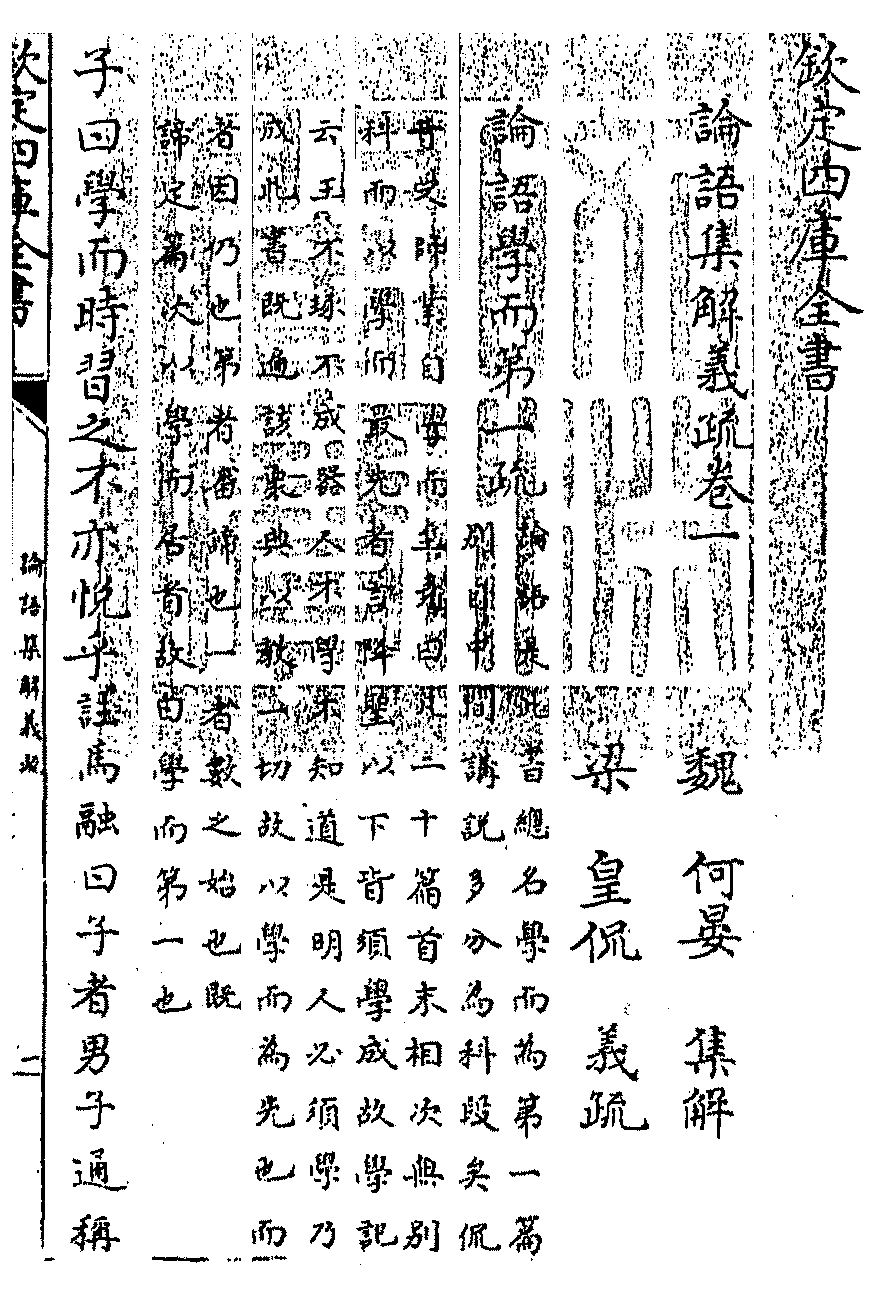 欽定四庫全書
論語集解義疏卷一
魏 何晏 集解
梁 皇侃 義疏
論語學而第一疏
論語是此書總名學而為第一篇
別目中間講說多分為科段矣侃
昔受師業自學而至堯曰凡二十篇首末相次無別
科而以學而最先者言降聖以下皆須學成故學記
云玉不琢不成器人不學不知道是明人必須學乃
成此書既遍該衆典以教一切故以學而為先也而
者因仍也第者審諦也一者數之始也既
諦定篇次以學而居首故曰學而第一也
子曰學而時習之不亦悅乎註馬融曰子者男子通稱
欽定四庫全書
論語集解義疏
二